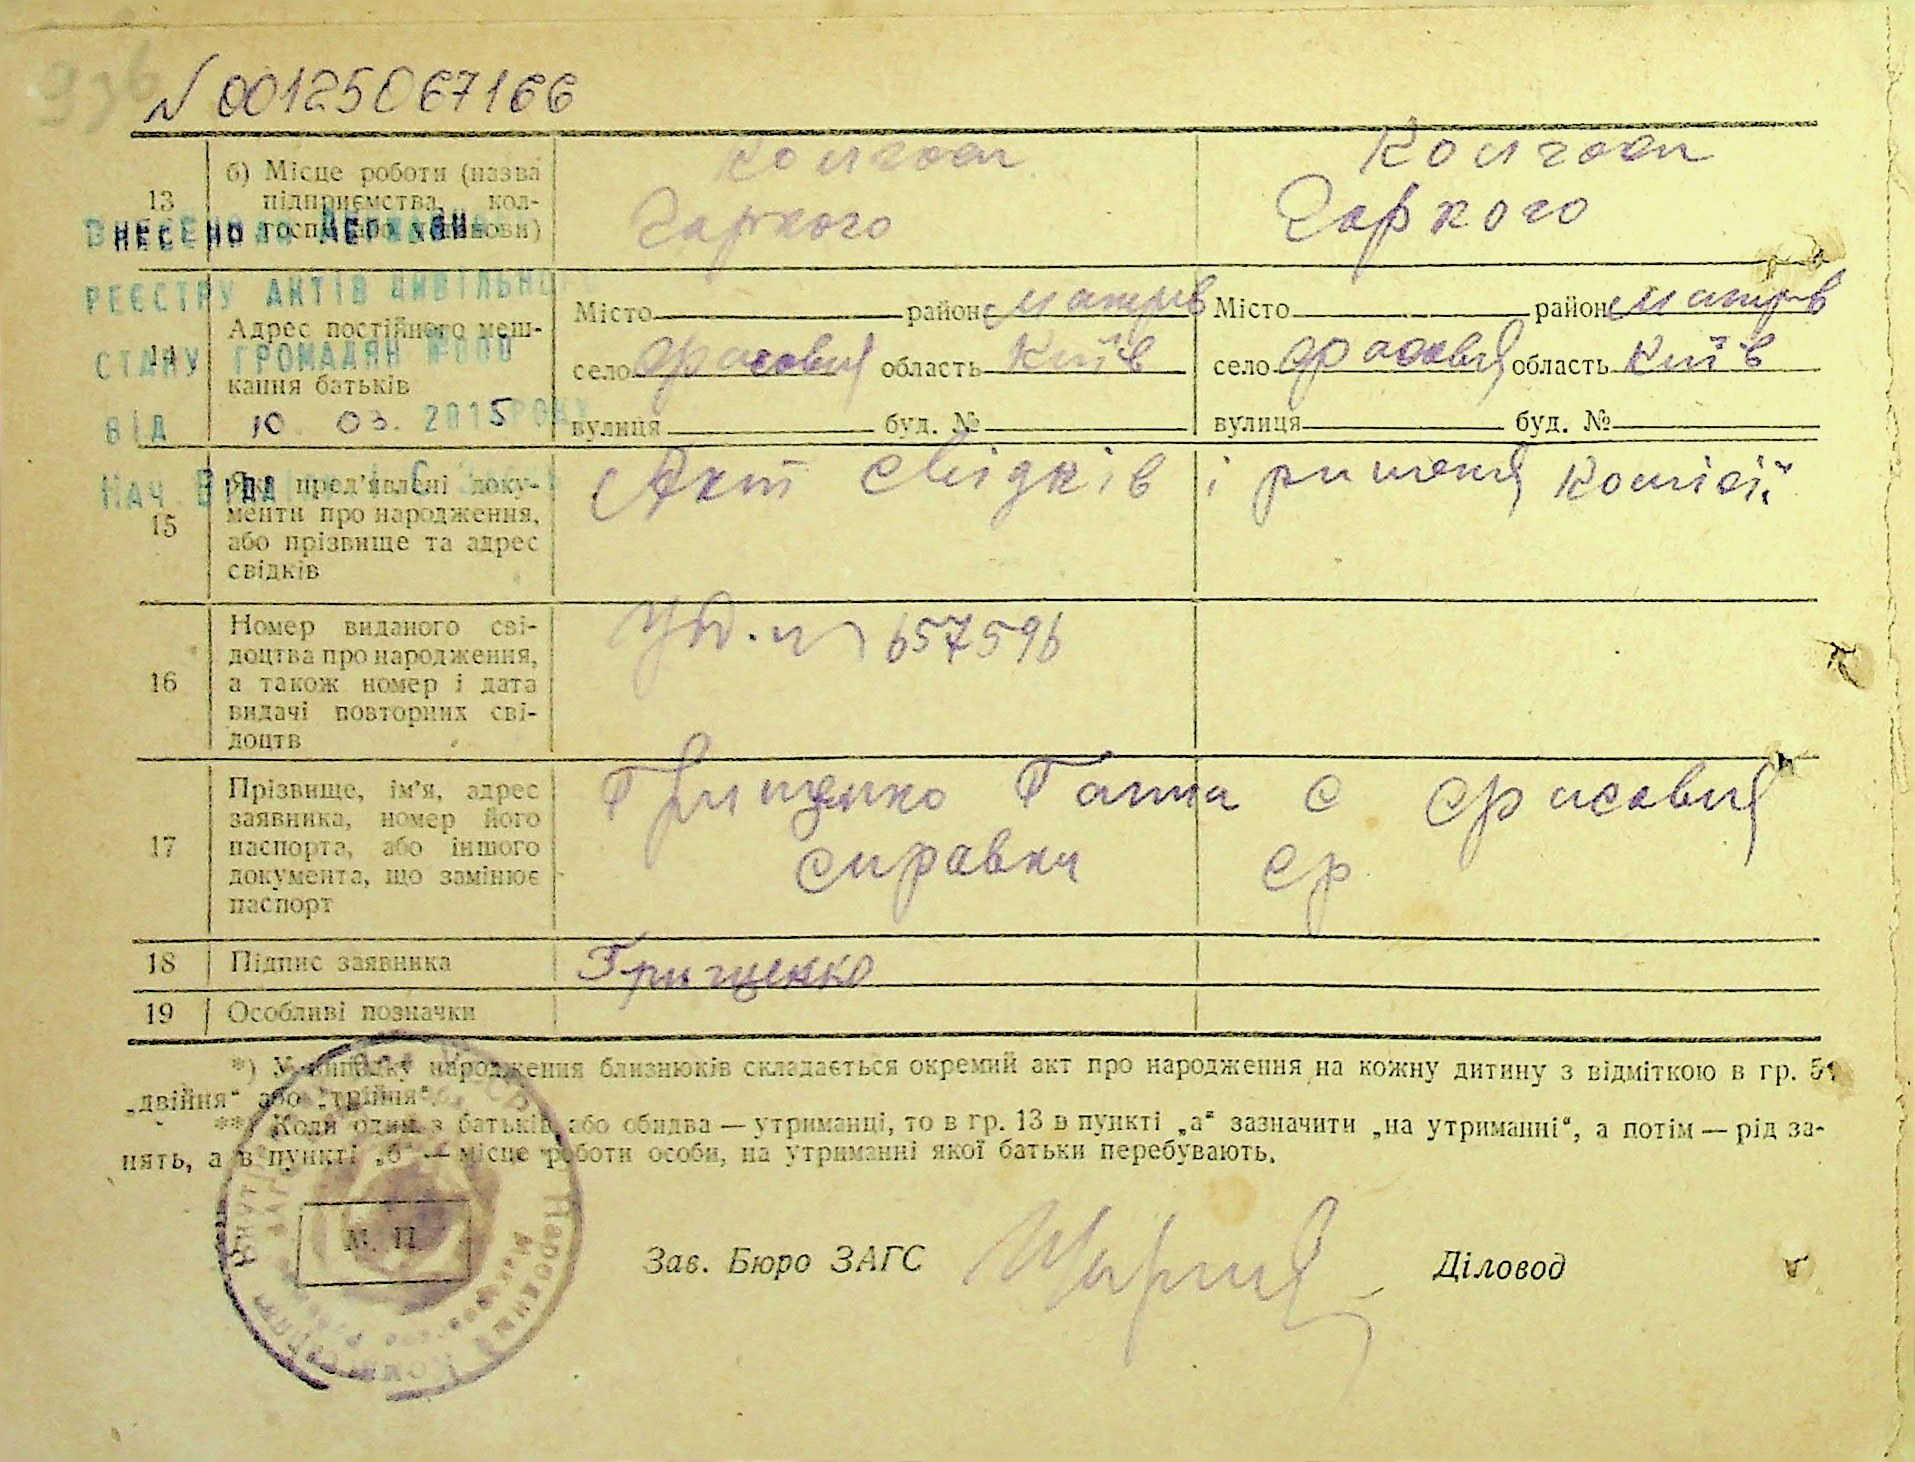 N 00125067166
13 б) Місце роботи (назва підприємства, колгоспу або установи)
Колгосп Горкого
Колгосп Горкого
ВНЕСЕНО ДО ДЕРЖАВН
РЕЄСТРУ АКТІВ ЦИВІЛЬНО
СТАНУ ГРОМАДЯН
ВІД 10 03. 2015 РОКУ
НАЧ. ВІДД
14 Адрес постійного мешкання батьків
Місто район Макарів
село область Київ
вулиця буд. №
Місто район Макарів
село область Київ
вулиця буд. №
15 Які пред'явлені документи про народження, або прізвище та адрес свідків
Акт свідків і ришення комісії
16 Номер виданого свідоцтва про народження, а також номер і дата видачі повторних свідоцтв
657596
17 Прізвище, ім'я, адрес заявника, номер його паспорта, або іншого документа, що замінює паспорт
Грищенко Ганна с
справка ср
18 Підпис заявника
Грищенко
19 Особливі позначки
*) У випадку народження близнюків складається окремий акт про народження на кожну дитину з відміткою в гр. 5
„двійня“ або „трійня“.
**) Коли один з батьків або обидва — утриманці, то в гр. 13 в пункті „а“ зазначити „на утриманні“, а потім — рід за-
нять, а в пункті „б“ — місце роботи особи, на утриманні якої батьки перебувають.
М. П.
Зав. Бюро ЗАГС
Діловод